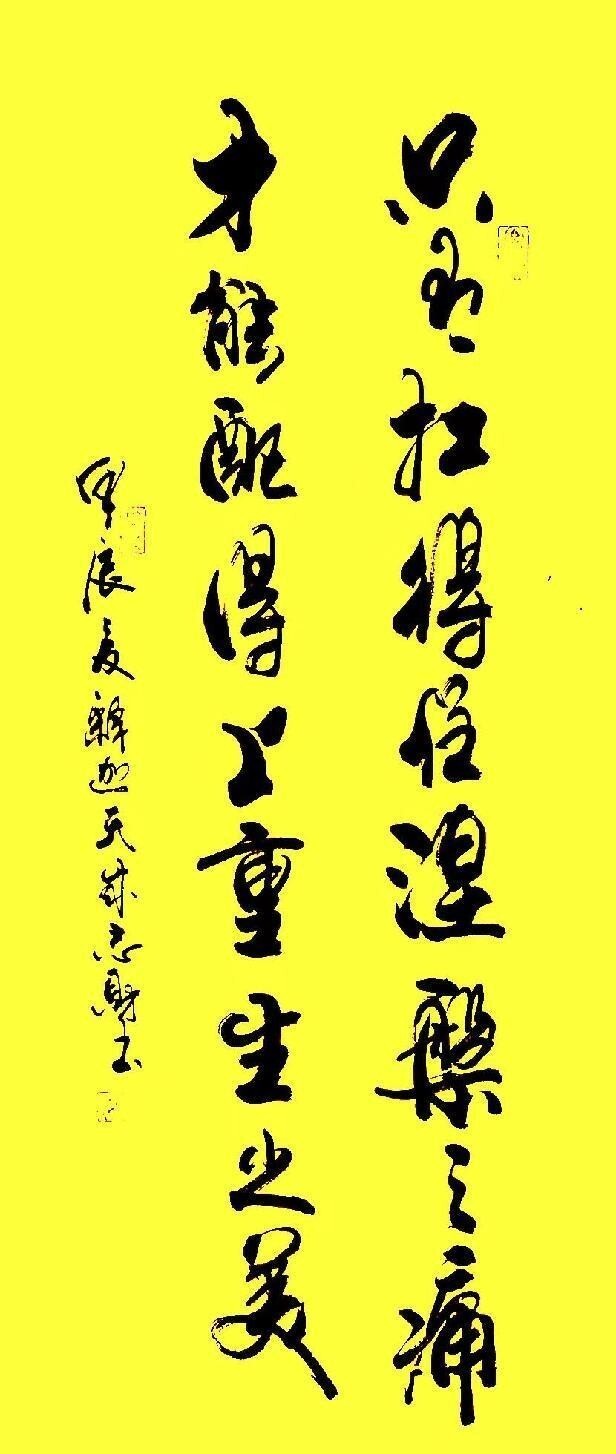 只有扛得住涅槃之痛
才能配得上重生之美
甲辰夏释迦天成志财书